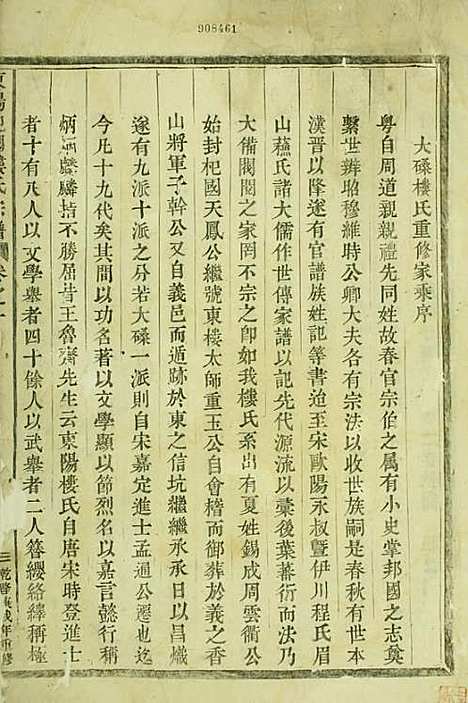 908461
大磉樓氏重修家乘序
粤自周道親親禮先同姓故春官宗伯之属有小史掌邦國之志奠
繫世辨昭穆維時公卿大夫各有宗法以收世族嗣是春秋有世本
漢晋以隆遂有官譜族姓記等書迨至宋歐陽永叔曁伊川程氏眉
山蘓氏諸大儒作世傳家譜以記先代源流以彙後葉蕃衍而法乃
大備閥閱之家罔不宗之即如我樓氏系出有夏姓錫成周雲衢公
始封杞國天鳳公繼號東樓太師重玉公自會稽而御葬於義之香
山將軍子幹公又自義邑而遁跡於東之信坑繼繼承承日以昌熾
遂有九派十派之分若大磉一派則自宋嘉定進士孟通公遷也迄
今凡十九代矣其間以功名著以文學顯以節烈名以嘉言懿行稱
炳炳麟麟指不勝屈昔王魯齋先生云東陽樓氏自唐宋時登進士
者十有八人以文學舉者四十餘人以武舉者二人簪纓絡繹稱極
宗譜 卷之一
三 乾隆庚戌年重修